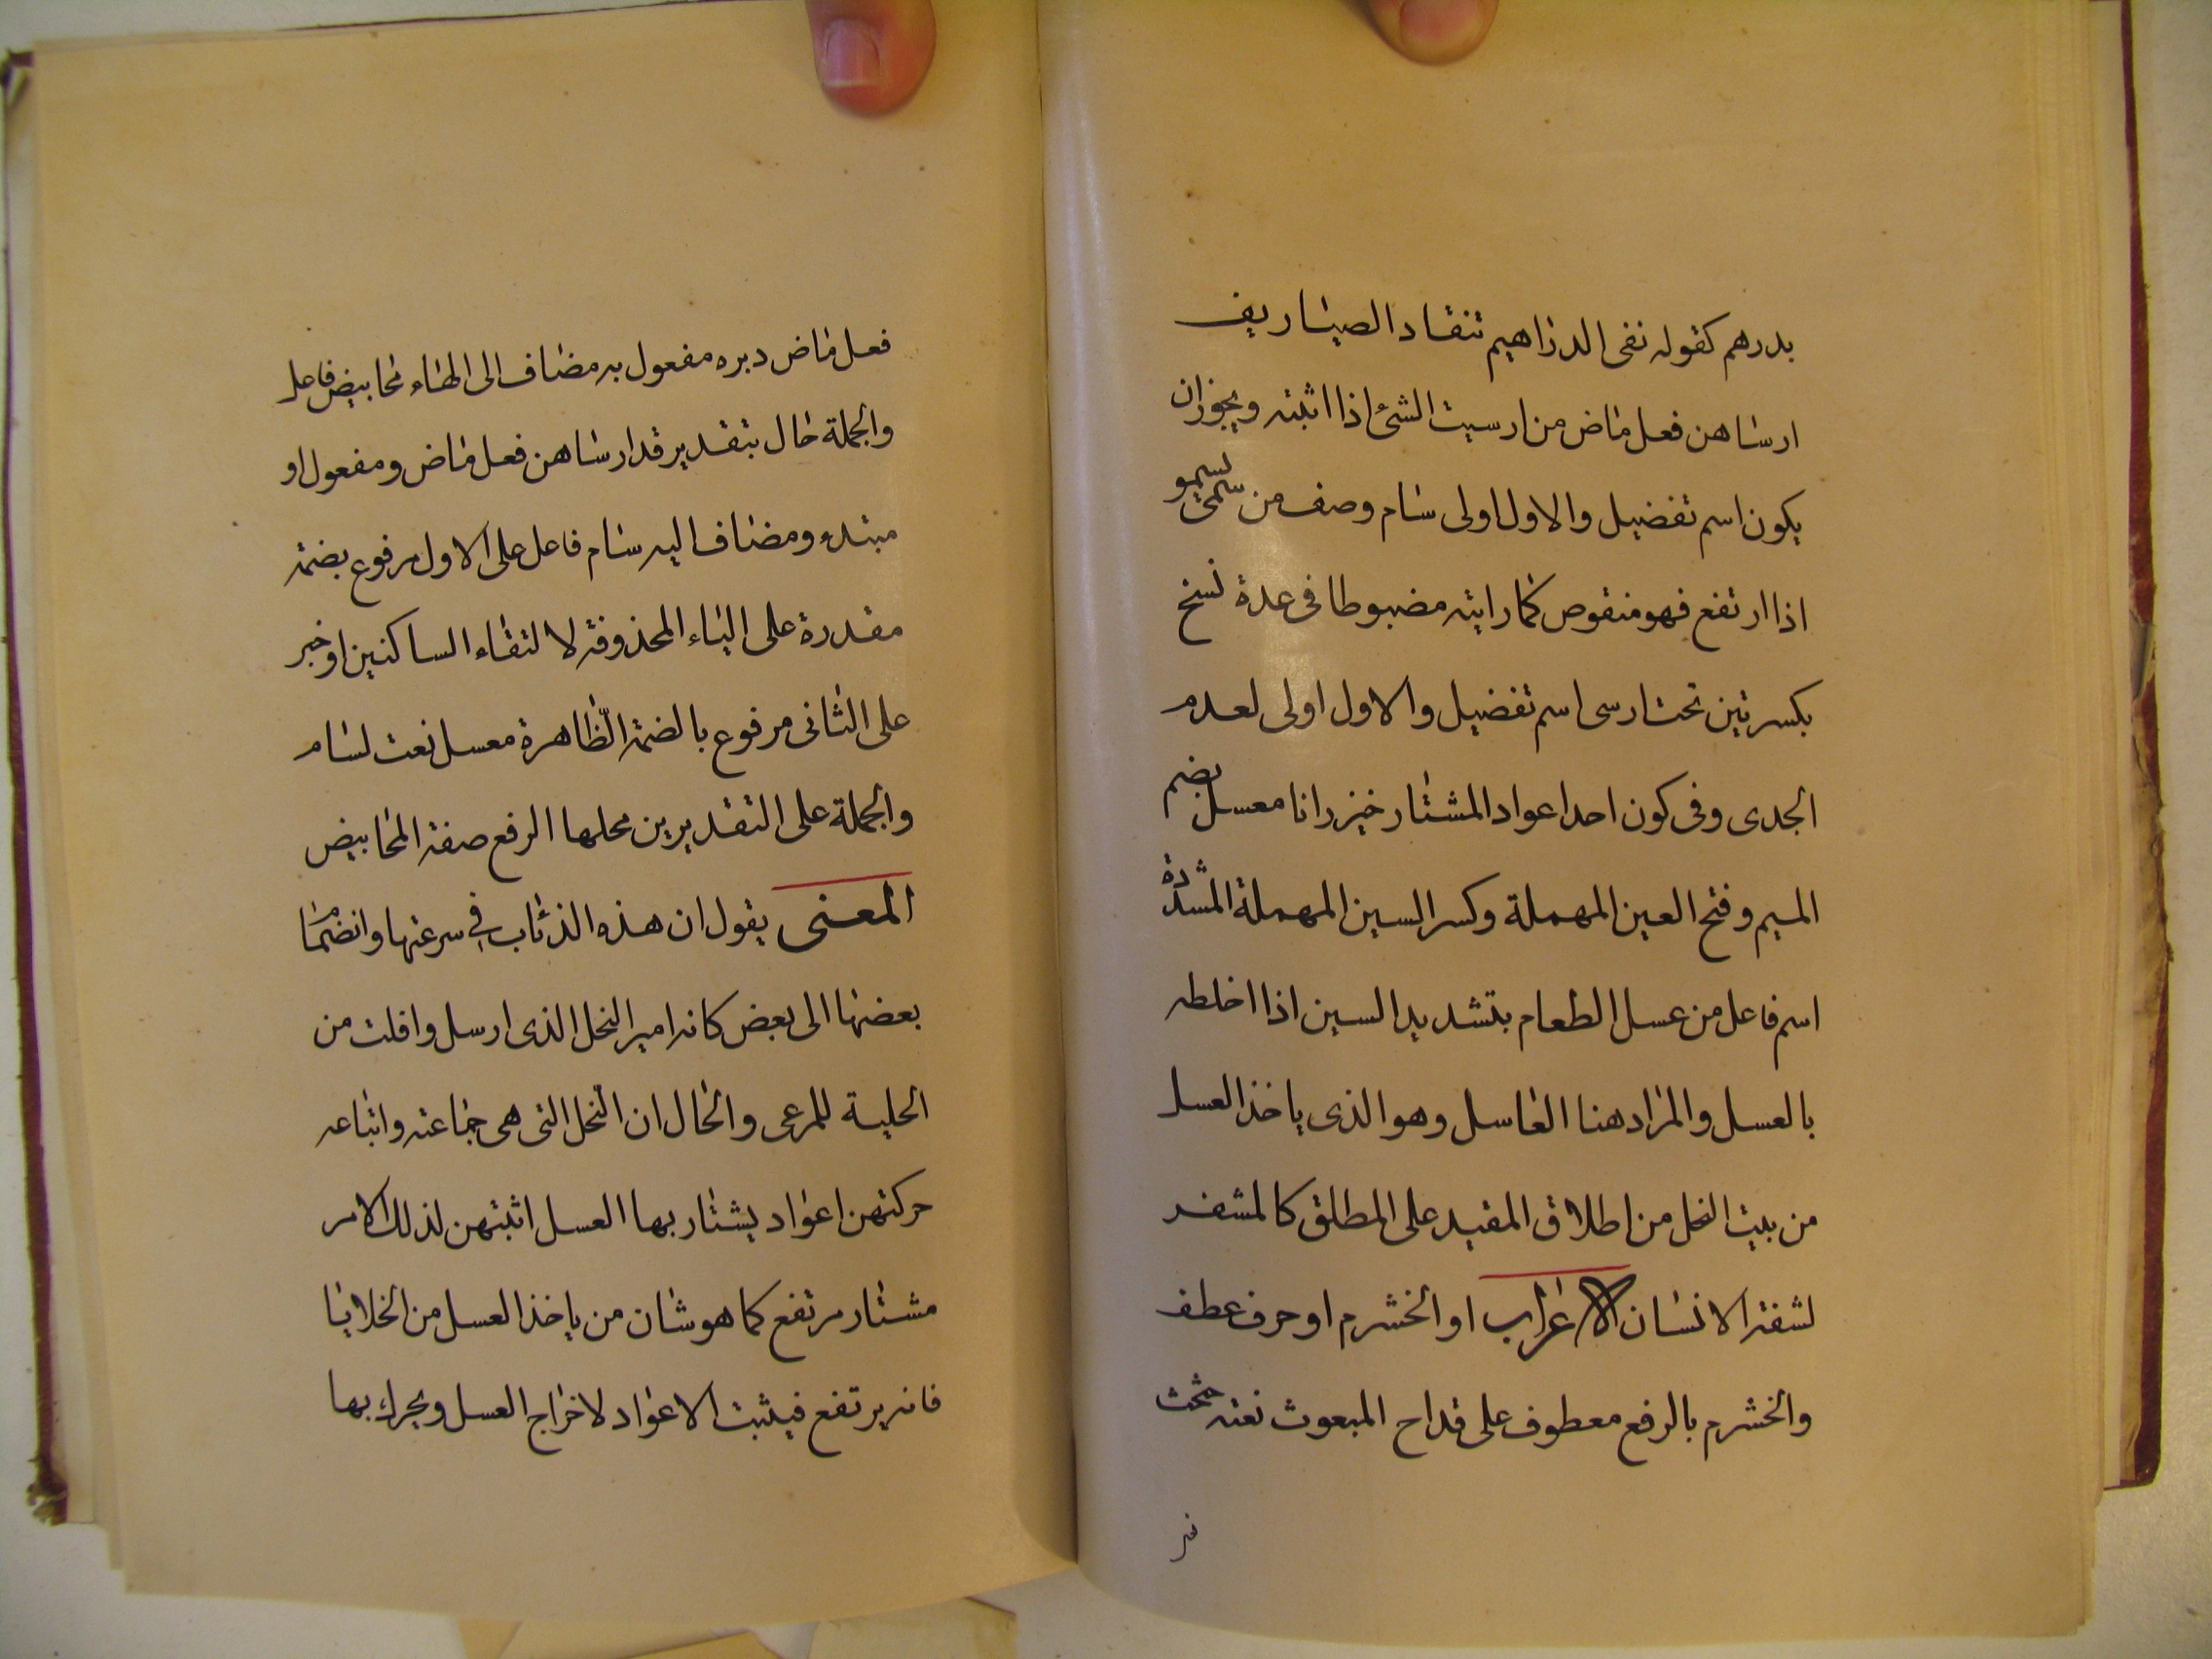 بدرهم كقوله نفى الدراهيم تنقاد الصياريف
ارساهن فعل ماض من ارسيت الشئ اذا اثبته ويجوز ان
يكون اسم تفضيل والاول اولى سام وصف من سمى يسمو
اذا ارتفع فهو منقوص كما رايته مضبوطا فى عدة نسخ
بكسرتين تحت ارسى اسم تفضيل والاول اولى لعدم
الجدى وفى كون احد اعواد المشتار خيزرانا معسل بضم
الميم وفتح العين المهملة وكسر السين المهملة المشددة
اسم فاعل من عسل الطعام بتشديد السين اذا اخلطه
بالعسل والمراد هنا العاسل وهو الذى ياخذ العسل
من بيت النحل من اطلاق المقيد على المطلق كالمشفر
لشفة الانسان الاعراب او الخشرم او حرف عطف
والخشرم بالرفع معطوف على قداح المبعوث نعته حثحث
فعل ماض دبره مفعول به مضاف الى الهاء محابيض فاعل
والجملة حال بتقدير قد ارساهن فعل ماض ومفعول او
مبتدء ومضاف اليه سام فاعل على الاول مرفوع بضمة
مقدرة على الياء المحذوفة لالتقاء الساكنين او خبر
على الثانى مرفوع بالضمة الظاهرة معسل نعت لسام
والجملة على التقديرين محلها الرفع صفة المحابيض
المعنى يقول ان هذه الذئاب في سرعتها وانضمام
بعضها الى بعض كانه امير النحل الذى ارسل وافلت من
الحلية للمرعى والحال ان النحل التى هى جماعته واتباعه
حركتهن اعواد يشتار بها العسل اثبتهن لذلك الامر
مشتار مرتفع كما هو شان من ياخذ العسل من الخلايا
فانه يرتفع فيثبت الاعواد لاخراج العسل ويحرك بها